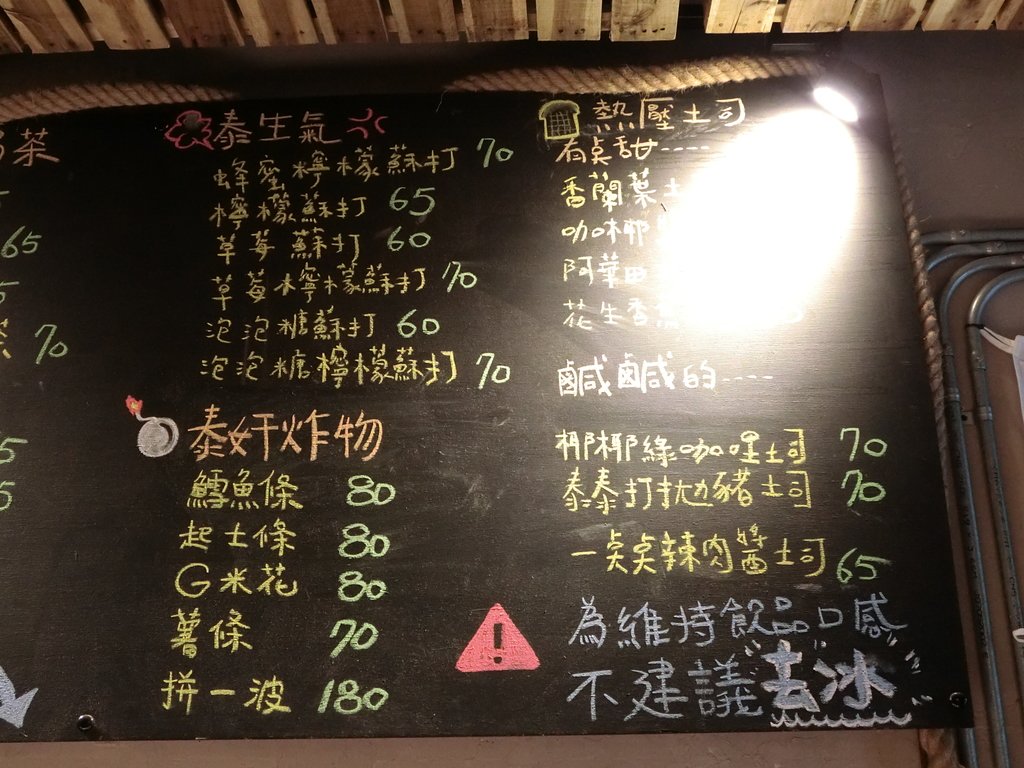 茶
65
70
泰生氣
蜂蜜檸檬蘇打 70
檸檬蘇打 65
草莓蘇打 60
草莓檸檬蘇打 70
泡泡糖蘇打 60
泡泡糖檸檬蘇打 70
泰奸炸物
鱈魚條 80
起士條 80
G米花 80
薯條 70
拼一波 180
熱壓土司
有點甜----
香蘭葉土
咖椰
阿華田
花生香蕉
鹹鹹的----
椰椰綠咖哩土司 70
泰泰打拋豬土司 70
一點點辣肉醬土司 65
為維持飲品口感
不建議去冰